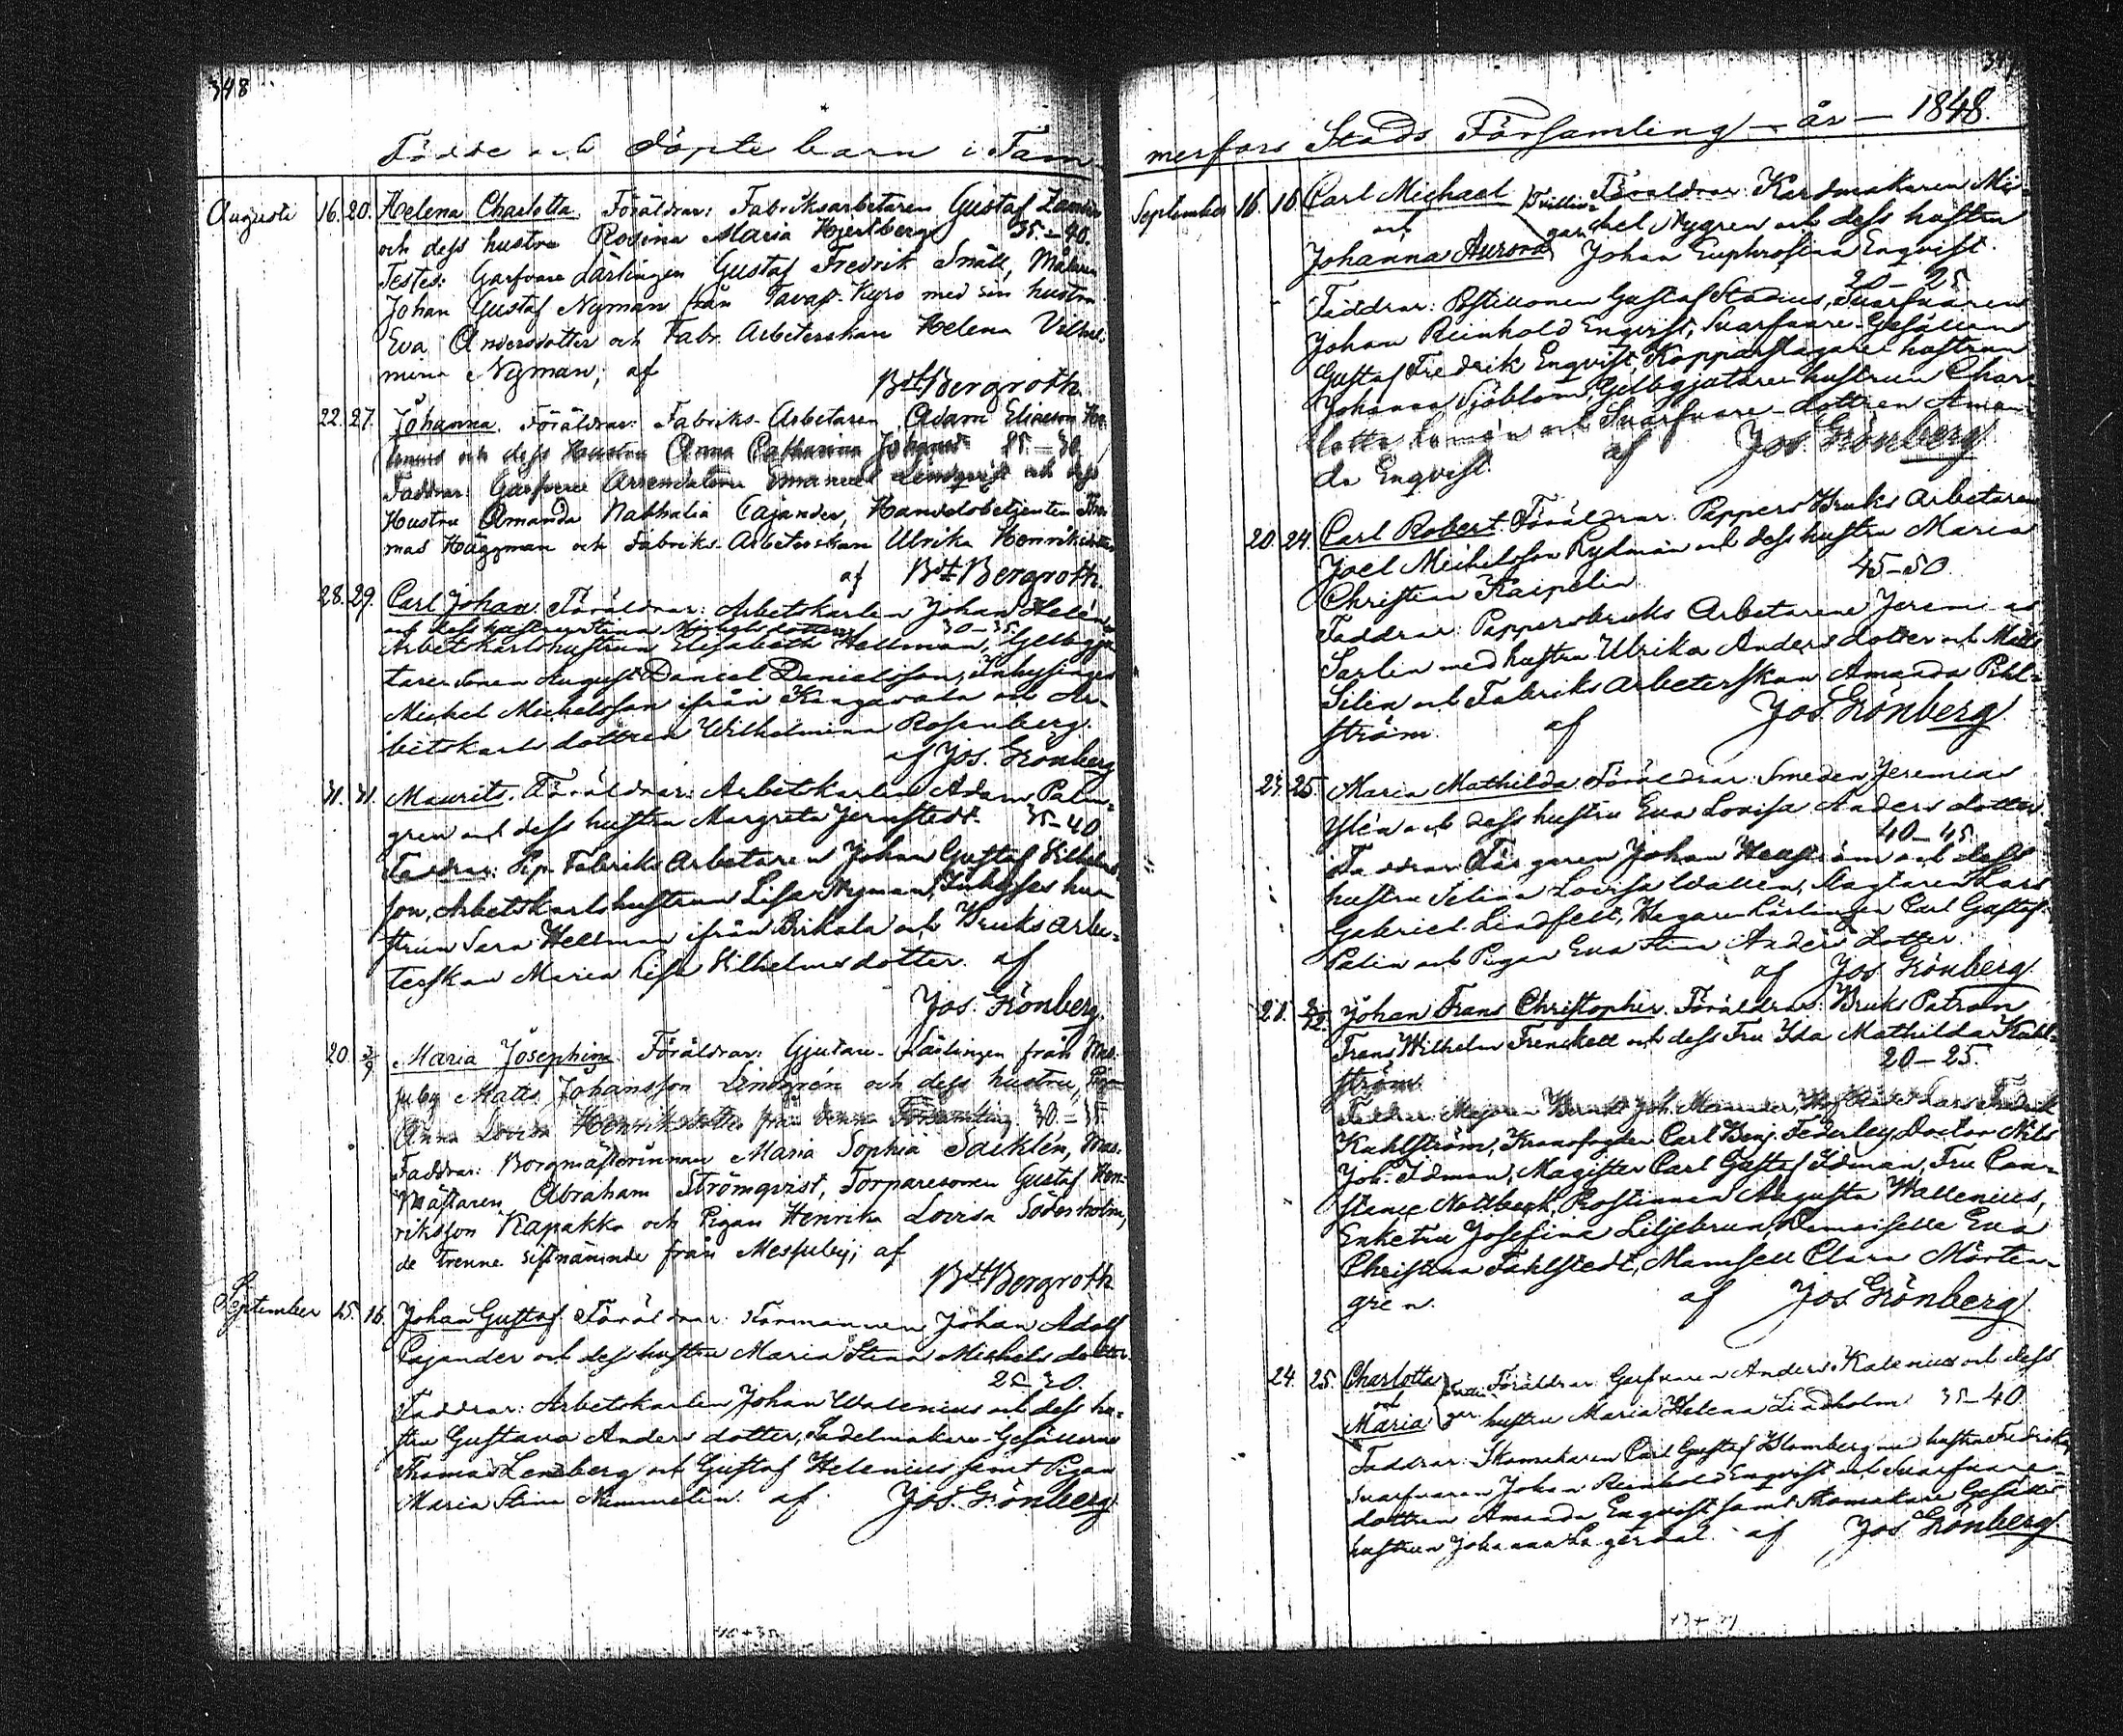 348
Födde och Döpte barn i Tam-
Augusti 16. 20. Helena Charlotta. Föräldrar: Fabriksarbetaren Gustaf
och dess hustru Rosina Maria Hjertberg 35-40.
Testes: Garfvare Lärlingen Gustaf Fredrik Snäll, Målaren
Johan Gustaf Nyman från Tavast-Kyro med sin hustru
Eva Andersdotter och Fabr. Arbeterskan Helena Vilhel-
mina Nyman; af
Bt Bergroth
22. 27. Johanna. Föräldrar: Fabriks-Arbetaren Adam Eliaeson
och dess Hustru Anna Catharina 25.-30.
Faddrar: Garfvare Emanuel Lindqvist och dess
Hustru Amanda Nathalia Cajander, Handelsbetjenten Tho-
mas Häggman och Fabriks-Arbeterskan Ulrika Henriksdotter
af Bt Bergroth.
28. 29. Carl Johan. Föräldrar: Arbetskarlen Johan Helén
och dess hustru Stina Michelsdotter 30-35
Arbetskarlshustrun Elisabeth Hellman, Gelbgju-
tare Sonen August Daniel Danielsson, Inhysingen
Michel Michelsson ifrån Kangasala och Ar-
betskarlsdottren Wilhelmina Rosenberg.
af Jos. Grönberg
31. 31. Maurits. Föräldrar: Arbetskarlen Adam Palm-
gren och dess hustru Margreta Jernstedt. 35-40
Faddrar: Pp. Fabriks Arbetaren Johan Gustaf Vilhelms-
son, Arbetskarlshustrun Lisa Nyman, Inhyses hu-
strun Sara Hellman ifrån Birkala och Bruksarbe-
terskan Maria Lisa Vilhelmsdotter. af
Jos. Grönberg.
20. 3/9 Maria Josephina. Föräldrar: Gjutare-Lärlingen från Mes-
suby Matts Johansson Lindgrén och dess hustru, Pigan
Anna Lovisa Henriksdotter från denna Församling 30.-35
Faddrar: Borgmästarinnan Maria Sophia Sacklén, Mur-
Mästaren Abraham Strömqvist, Torparesonen Gustaf Hen-
riksson Kapakka och Pigan Henrika Lovisa Söderholm,
de trenne sistnämnde från Messuby; af
Bt Bergroth
September 15. 16. Johan Gustaf. Föräldrar: Formannen Johan Adolf
Cajander och dess hustru Maria Stina Michelsdotter.
25-30.
Faddrar: Arbetskarlen Johan Walenius och dess hu-
stru Gustava Andersdotter, Sadelmakare-Gesällerne
Thomas Lensberg och Gustaf Helenius samt Pigan
Maria Stina Nummelin. af Jos. Grönberg
merfors Stads Församling - år - 1848.
September 16. 16 Carl Michael Tvillin- Föräldrar: Kardmakaren Mi-
och gar chel Nygren och dess hustru
Johanna Aurora Johan Euphrosina Enqvist.
20-25
Faddrar: Postillionen Gustaf Stadius, Svarfvaren
Johan Reinhold Enqvist, Svarfvare-Gesällen
Gustaf Fredrik Enqvist, Kopparslagare hustrun
Johanna Sjöblom, Gelbgjutare hustrun Char-
lotta och Svarfvare-dottren Aman-
da Enqvist. af Jos. Grönberg
20. 24. Carl Robert. Föräldrar: Pappers Bruks Arbetaren
Joel Michelsson Rydman och dess hustru Maria
Christina Kaipelin 45-50.
Faddrar: Pappersbruks Arbetarene Jeremias
Sarlin med hustru Ulrika Andersdotter och Matts
Silén och Fabriks Arbeterskan Amanda Pihl-
ström. af Jos. Grönberg
24. 25. Maria Mathilda. Föräldrar: Smeden Jeremias
Ylén och dess hustru Eva Lovisa Andersdotter.
40-45.
Faddrar: Färgaren Johan och dess
hustru Selina Lovisa Wallén, Lars
Gabriel Lindfelt, Carl Gustaf
Palin och Pigan Eva Stina Andersdotter.
af Jos. Grönberg.
28. 2/12. Johan Frans Christopher. Föräldrar: Bruks Patron
Frans Wilhelm Frenckell och dess Fru Ida Mathilda Kuhl-
ström 20-25.
Faddrar: Majoren Berndt Joh. Munsterhjelm, Lars Fredrik
Kuhlström, Kronofogden Carl Benj. Federley, Doctor Nils
Joh. Idman, Magister Carl Gustaf Idman, Fru Con-
stance Nordberg, Prostinnan Augusta Wallenius,
Enkefru Josefina Liljebrun, Demoiselle Eva
Christina Fahlstedt, Mamsell Clara Mårten-
gren. af Jos. Grönberg
24. 25. Charlotta Tvillin- Föräldrar: Garfvaren Anders Kalenius och dess
och
Maria gar hustru Maria Helena Lindholm 35-40.
Faddrar: Skomakaren Carl Gustaf Blomberg med hustru Fredrika,
Svarfvaren Johan Reinhold Enqvist och Svarfvare-
dottren Amanda Enqvist samt Skomakare Gesälls-
hustrun Johanna Lagerdal. af Jos. Grönberg